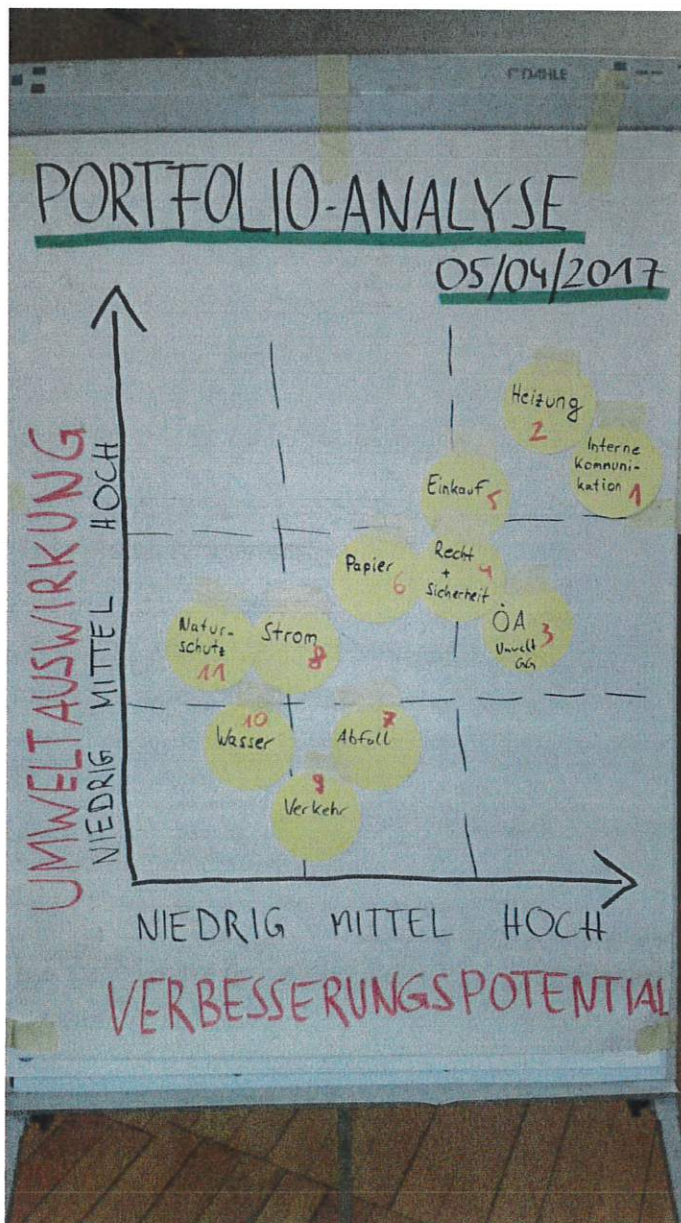 DAHLE
PORTFOLIO-ANALYSE
05/04/2017
UMWELTAUSWIRKUNG
NIEDRIG MITTEL HOCH
Heizung
2
Interne
Kommuni-
kation 1
Einkauf 5
Papier 6
Recht 4
+
Sicherheit
ÖA 3
Umwelt
GG
Natur-
schutz
11
Strom
8
10
Wasser
7
Abfall
9
Verkehr
NIEDRIG MITTEL HOCH
VERBESSERUNGSPOTENTIAL